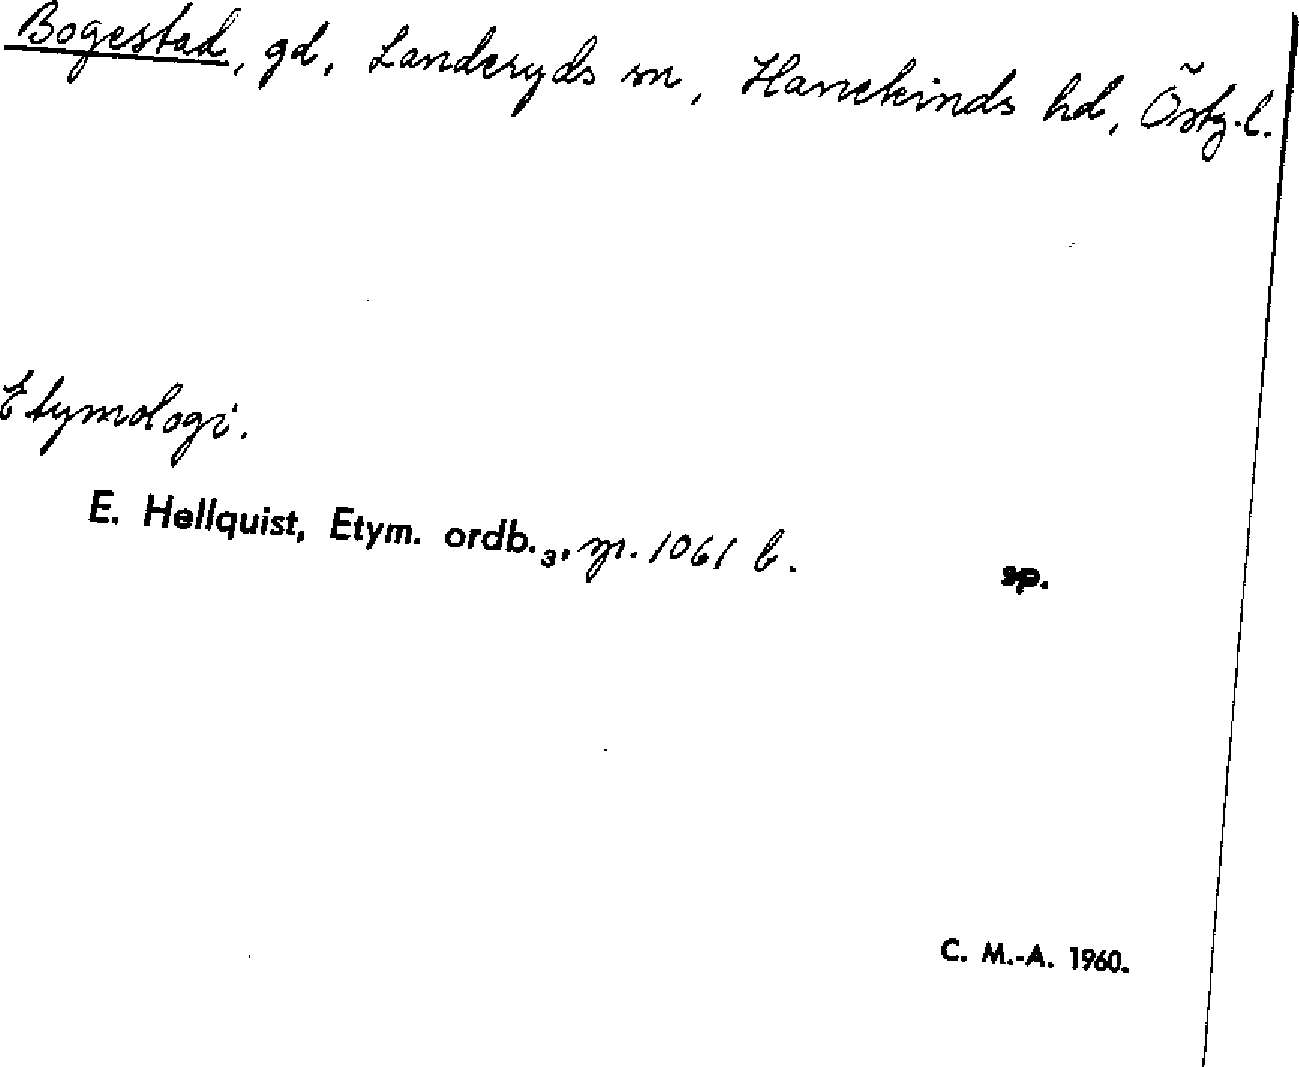 Bogestad, gd, Landeryds sn, Hanekinds hd, Östg.l.
Etymologi.
E. Hellquist, Etym. ordb.₃, p. 1061 b. sp.
C. M.-A. 1960.